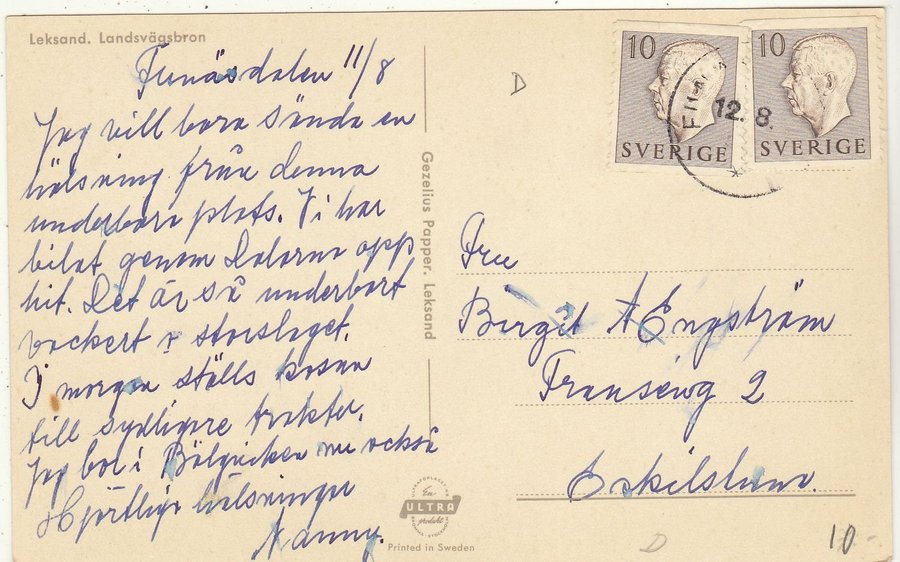 Leksand. Landsvägsbron
Funäsdalen 11/8
Jag vill bara sända en
hälsning från denna
underbara plats. Vi har
bilat genom Dalarna opp
hit. Det är så underbart
vackert o storslaget.
I morgon ställs kosan
till sydligare trakter.
Jag bor i nu också
Hjärtliga hälsningar
Nanny.
Gezelius Papper. Leksand
D
10 SVERIGE
10 SVERIGE
12. 8.
Fru
Birgit A Engström
2
Eskilstuna.
En
ULTRA
produkt
Printed in Sweden
D
10.-